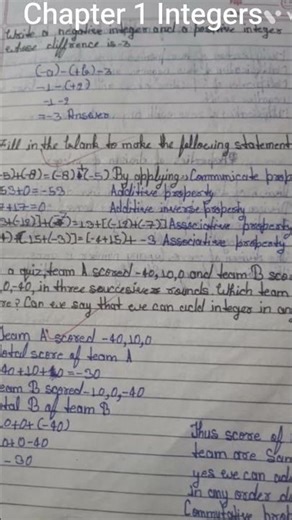 Chapter 1 Integers
Write a negative integer and a positive integer
whose difference is -3
(-a)-(+b)-3
-1-(+2)
-1-2
=-3 Answer
Fill in the blank to make the following statement
-5)+(-8)=(-8)+(-5) By applying Communicate prop
53+0=-53 Additive property
7+17=0 Additive inverse property
=13+[(-12)+(-7)] Associative property
[15+(-3)]=[-4+15]+-3 Associative property
a quiz, team A scored -40,10,0 and team B sco
0,-40, in three successive rounds. Which team
re? Can we say that we can add integer in an
Team A scored -40,10,0
Total score of team A
40+10+0=-30
eam B scored-10,0,-40
tal B of team B
0+0+(-40)
0+0-40
-30
Thus score of
team are Sam
yes we can ad
in any order d
Commutative prop